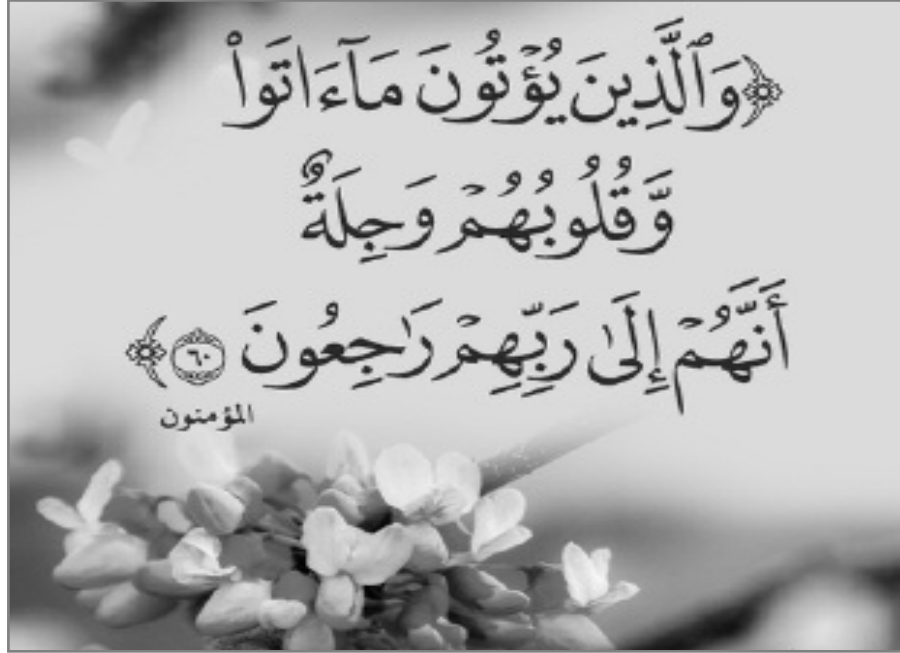 ﴿وَٱلَّذِينَ يُؤۡتُونَ مَآ ءَاتَواْ
وَّقُلُوبُهُمۡ وَجِلَةٌ
أَنَّهُمۡ إِلَىٰ رَبِّهِمۡ رَٰجِعُونَ ٦٠﴾
المؤمنون